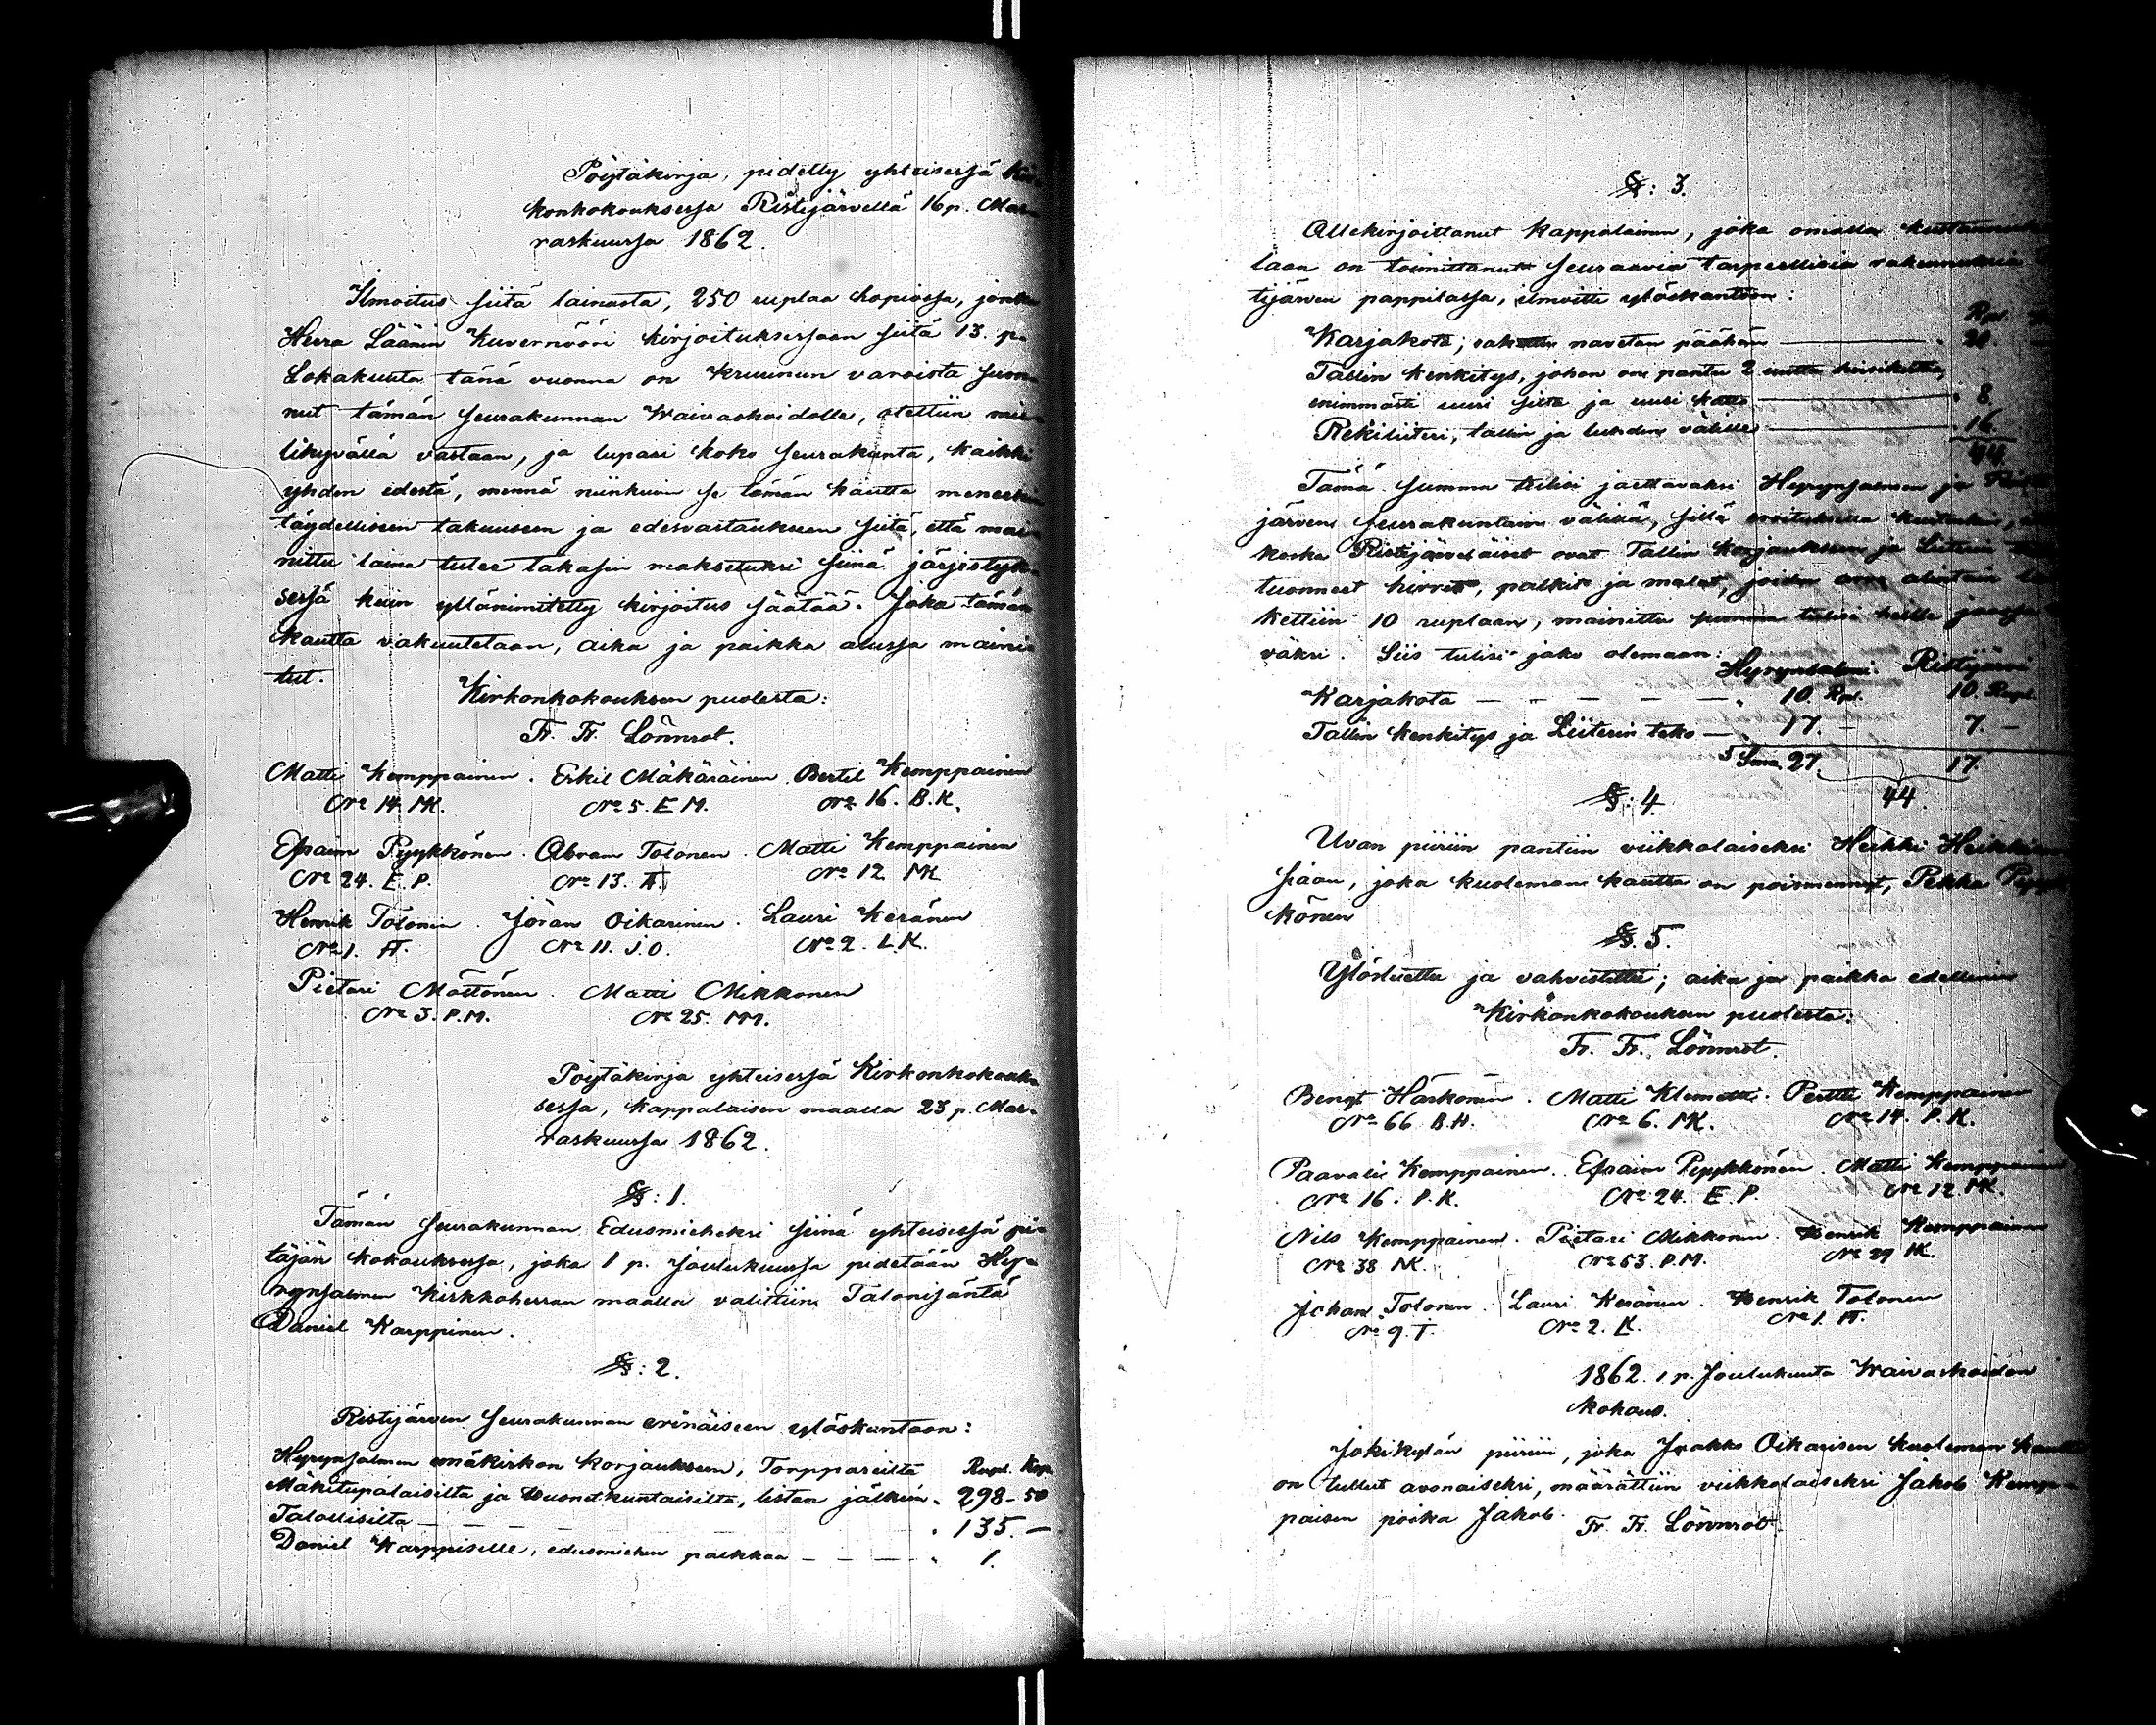 Pöytäkirja, pidetty yhteisessä Kir-
konkokouksessa Ristijärvellä 16 p. Mar-
raskuussa 1862.
Ilmoitus siitä lainasta, 250 ruplaa hopiossa, jonka
Herra Läänin Kuvernööri kirjoituksessaan siitä 13. p.
Lokakuuta tänä vuonna on Kruunun varoista suon-
nut tämän seurakunnan Waivashoidolle, otettiin mie-
lihyvällä vastaan, ja lupasi koko seurakunta, kaikki
yhden edestä, mennä niinkuin se tämän kautta menee
täydelliseen takuuseen ja edesvastaukseen siitä, että mai-
nittu laina tulee takasin maksetuksi siinä järjestyk-
sessä kuin yllänimitetty kirjoitus säätää. Joka tämän
kautta vakuutetaan, aika ja paikka alussa maini-
tut.
Kirkonkokouksen puolesta:
Fr. Fr. Lönnrot.
Matti Kemppainen. Erkil Mäkäräinen. Bertil Kemppainen
No 14. MK. No 5. E M. No 16. B.K.
Efraim Pyykkönen. Abram Tolonen. Matti Kemppainen
No 24. E. P. No 13. A. No 12 MK
Henrik Tolonen. Jöran Oikarinen. Lauri Keränen
No 1. H. No 11. J.O. No 2. L.K.
Pietari Möttönen. Matti Mikkonen
No 3. P.M. No 25. MM.
Pöytäkirja yhteisessä Kirkonkokouk-
sessa, Kappalaisen maalla 23 p. Mar-
raskuussa 1862.
§: 1.
Tämän seurakunnan Edusmieheksi siinä yhteisessä pi-
täjän kokouksessa, joka 1 p. Joulukuussa pidetään Hy-
rynsalmen Kirkkoherran maalla valittiin Talonisäntä
Daniel Karppinen.
§: 2.
Ristijärven seurakunnan erinäiseen ylöskantoon:
Hyrynsalmen emäkirkon korjaukseen, Torppareilta Rupl. Kop.
Mäkitupalaisilta ja huonekuntaisilta, listan jälkeen " 298 - 50
Talollisilta — — — — " 135. —
Daniel Karppiselle, edusmiehen palkkaa — — — " 1.
§: 3.
Allekirjoittanut Kappalainen, joka omalla
laan on toimittanut seuraavia tarpeellisia rakennuksia
tijärven pappilassa, ilmoitti ylöskantoon:
Karjakota; navetan päähän — " 20.
Tallin kenkitys, johon on pantu 2 uutta hirsikertaa,
enimmästi uusi silta ja uusi katto — " 8.
Rekiliiteri, tallin ja luhdin välille — " 16.
44
Tämä summa tulisi jaettavaksi Hyrynsalmen ja Risti-
järven seurakuntain välillä, sillä eroituksella kuitenkin,
koska Ristijärveläiset ovat Tallin korjaukseen ja Liiterin
tuonneet hirret, palkit ja malat, joiden arvo
kettiin 10 ruplaan, mainittu summa tulisi heille
väksi. Siis tulisi jako olemaan:
Hyrynsalmi. Ristijärvi
Karjakota — — — — — " 10. Rpl. 10. Rupl.
Tallin kenkitys ja Liiterin teko — " 17. — 7. —
Sma 27. 17.
44.
§: 4.
Uvan piiriin pantiin viikkolaiseksi Heikki Heikkisen
siaan, joka kuoleman kautta on poismennyt, Pekka Pyyk-
könen
§. 5.
Ylösluettu ja vahvistettu; aika ja paikka edellinen
Kirkonkokouksen puolesta:
Fr. Fr. Lönnrot.
Bengt Härkönen. Matti Klemetti. Pertti Kemppainen
No 66. B.H. No 6. MK. No 14. P. K.
Paavali Kemppainen. Efraim Pyykkönen. Matti Kemppainen
No 16. P.K. No 24. E. P. No 12 MK.
Nils Kemppainen. Pietari Mikkonen. Henrik Kemppainen
No 38 NK. No 53. P.M. No 29 HK.
Johan Tolonen. Lauri Keränen. Henrik Tolonen
No 9. T. No 2. K. No 1. H.
1862. 1 p. Joulukuuta Waivashoidon
Kokous.
Jokikylän piiriin, joka Jaakko Oikarisen kuoleman kautta
on tullut avonaiseksi, määrättiin viikkolaiseksi Jakob Kemp-
paisen poika Jakob. Fr. Fr. Lönnrot.